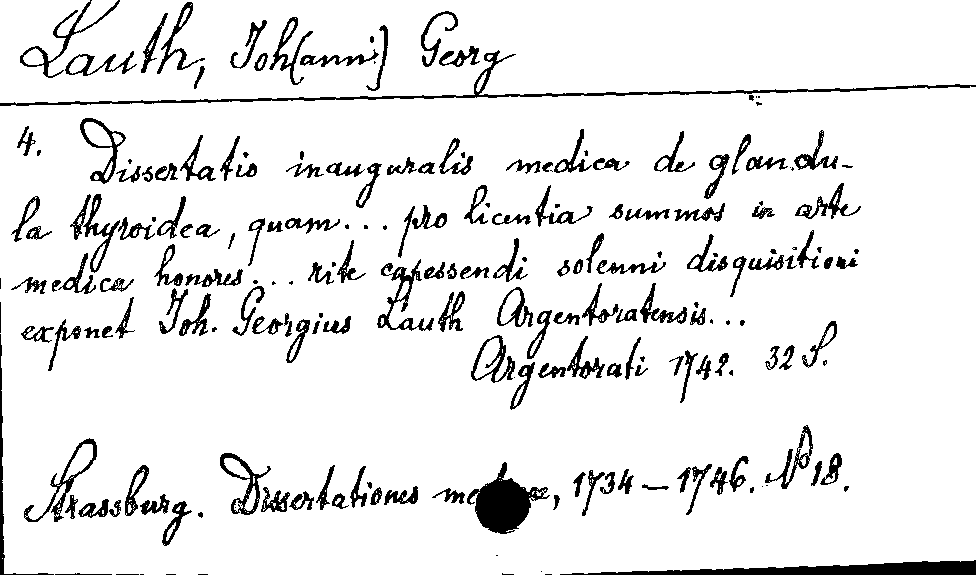 Lauth, Joh[anni] Georg
4. Dissertatio inauguralis medica de glandu-
la thyroidea, quam... pro licentia summos in arte
medica honores... rite capessendi solenni disquisitioni
exponet Joh. Georgius Lauth Argentoratensis...
Argentorati 1742. 32 S.
Strassburg. Dissertationes , 1734 – 1746. No 18.